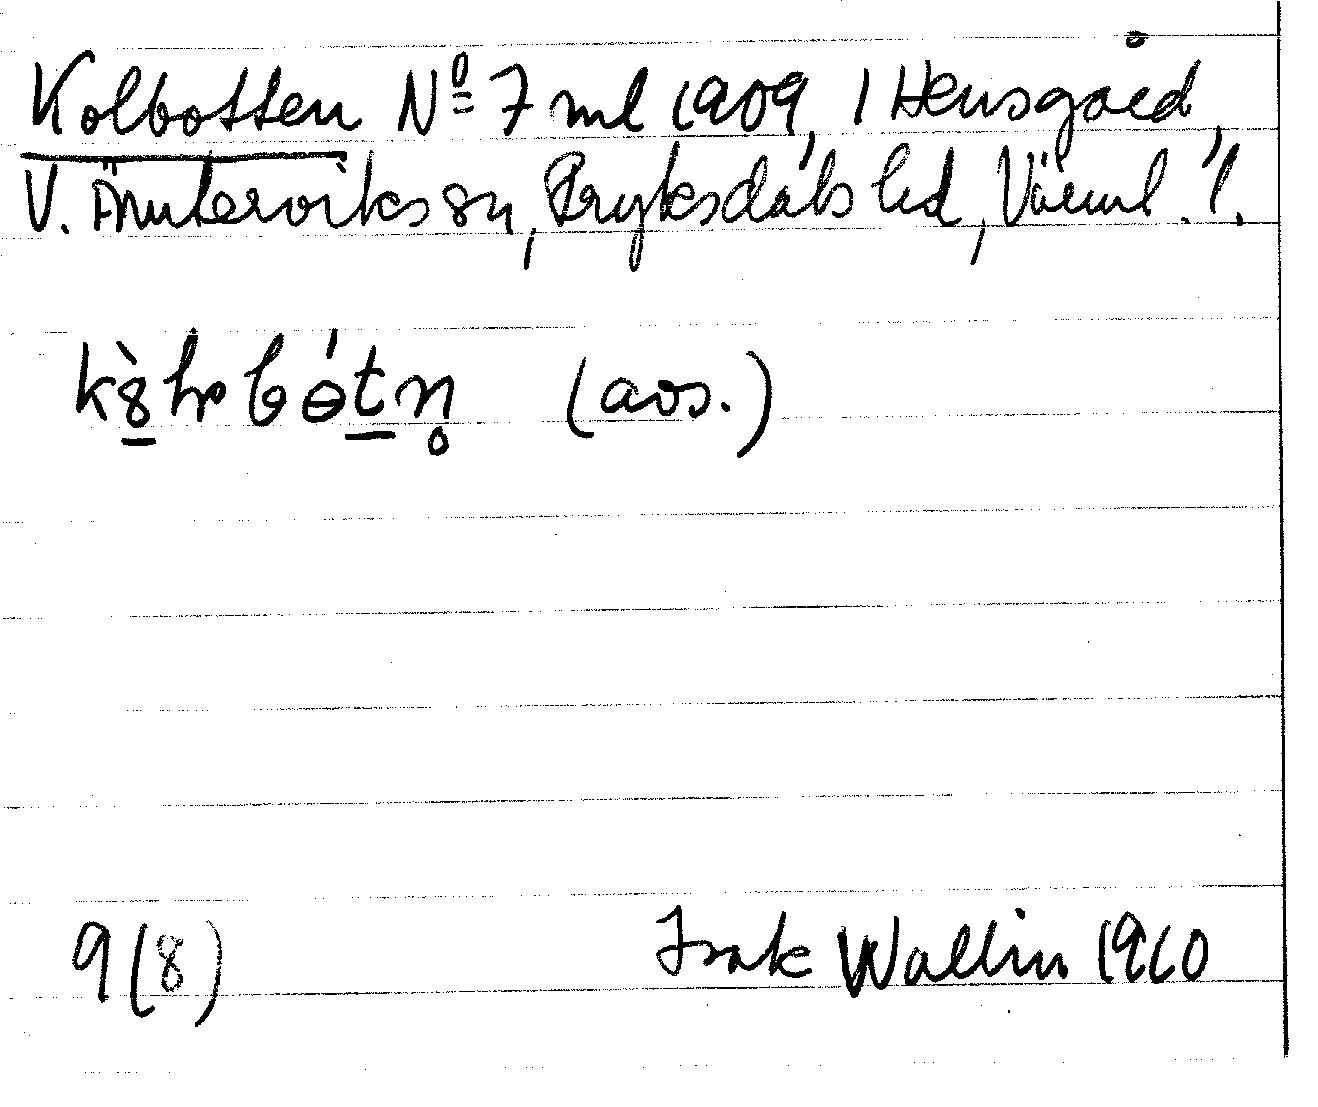 Kolbotten Nº 7 ml 1909, i Hensgård,
V. Ämterviks sn, Fryksdals hd, Värml. l.
(aos.)
9 (8)
Isak Wallin 1960